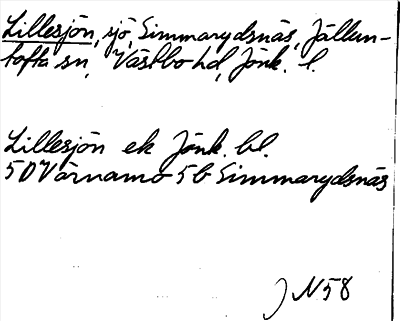 Lillesjön, sjö, Simmarydsnäs, Jällun-
tofta sn, Västbo hd, Jönk. l.
Lillesjön ek Jönk. bl.
5D Värnamo 5b Simmarydsnäs
J N 58